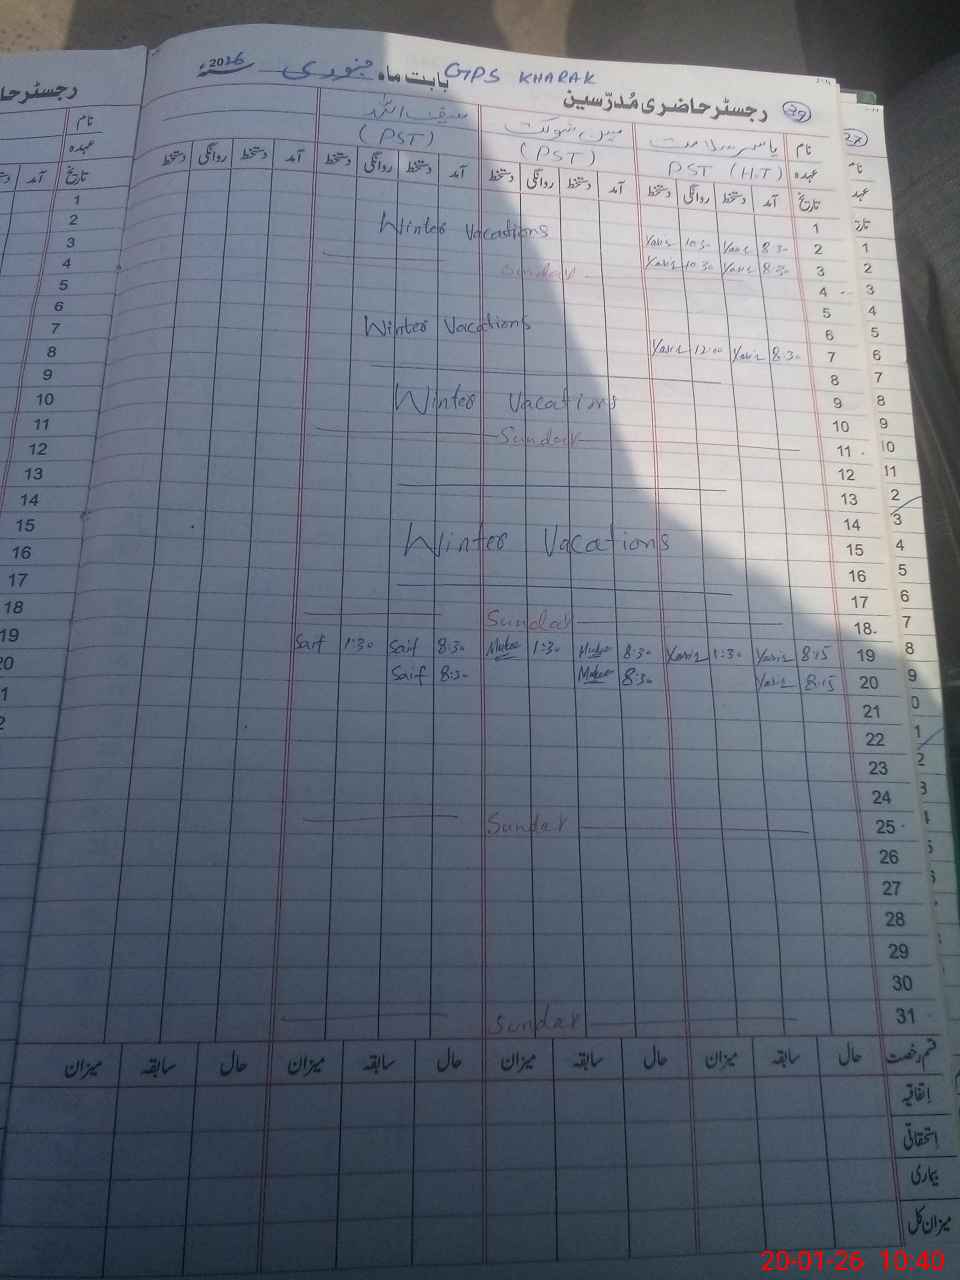 GPS KHARAK
رجسٹر حاضری مُدرّسین بابت ماہ جنوری 2026ء
29
نام یاسر سلامت میاں شوکت سیف اللہ
عہدہ PST (H.T) (PST) (PST)
تاریخ آمد دستخط روانگی دستخط آمد دستخط روانگی دستخط آمد دستخط روانگی دستخط آمد دستخط روانگی دستخط
1
Winter Vacations
2 8:30 Yasir 10:30 Yasir
3 8:30 Yasir 10:30 Yasir
Sunday
4
5
6
Winter Vacations
7 8:30 Yasir 12:00 Yasir
8
9
Winter Vacations
10
11 Sunday
12
13
14
15 Winter Vacations
16
17
18 Sunday
19 8:15 Yasir 1:30 Yasir 8:30 1:30 8:30 Saif 1:30 Saif
20 8:15 Yasir 8:30 8:30 Saif
21
22
23
24
25 Sunday
26
27
28
29
30
31 Sunday
قسم رخصت حال سابقہ میزان حال سابقہ میزان حال سابقہ میزان حال سابقہ میزان
اتفاقیہ
استحقاقی
بیماری
میزان کل
رجسٹر حا
نام
عہدہ
تاریخ آمد
1
2
3
4
5
6
7
8
9
10
11
12
13
14
15
16
17
18
19
20
27
1
2
3
4
5
6
7
8
9
10
11
20-01-26 10:40